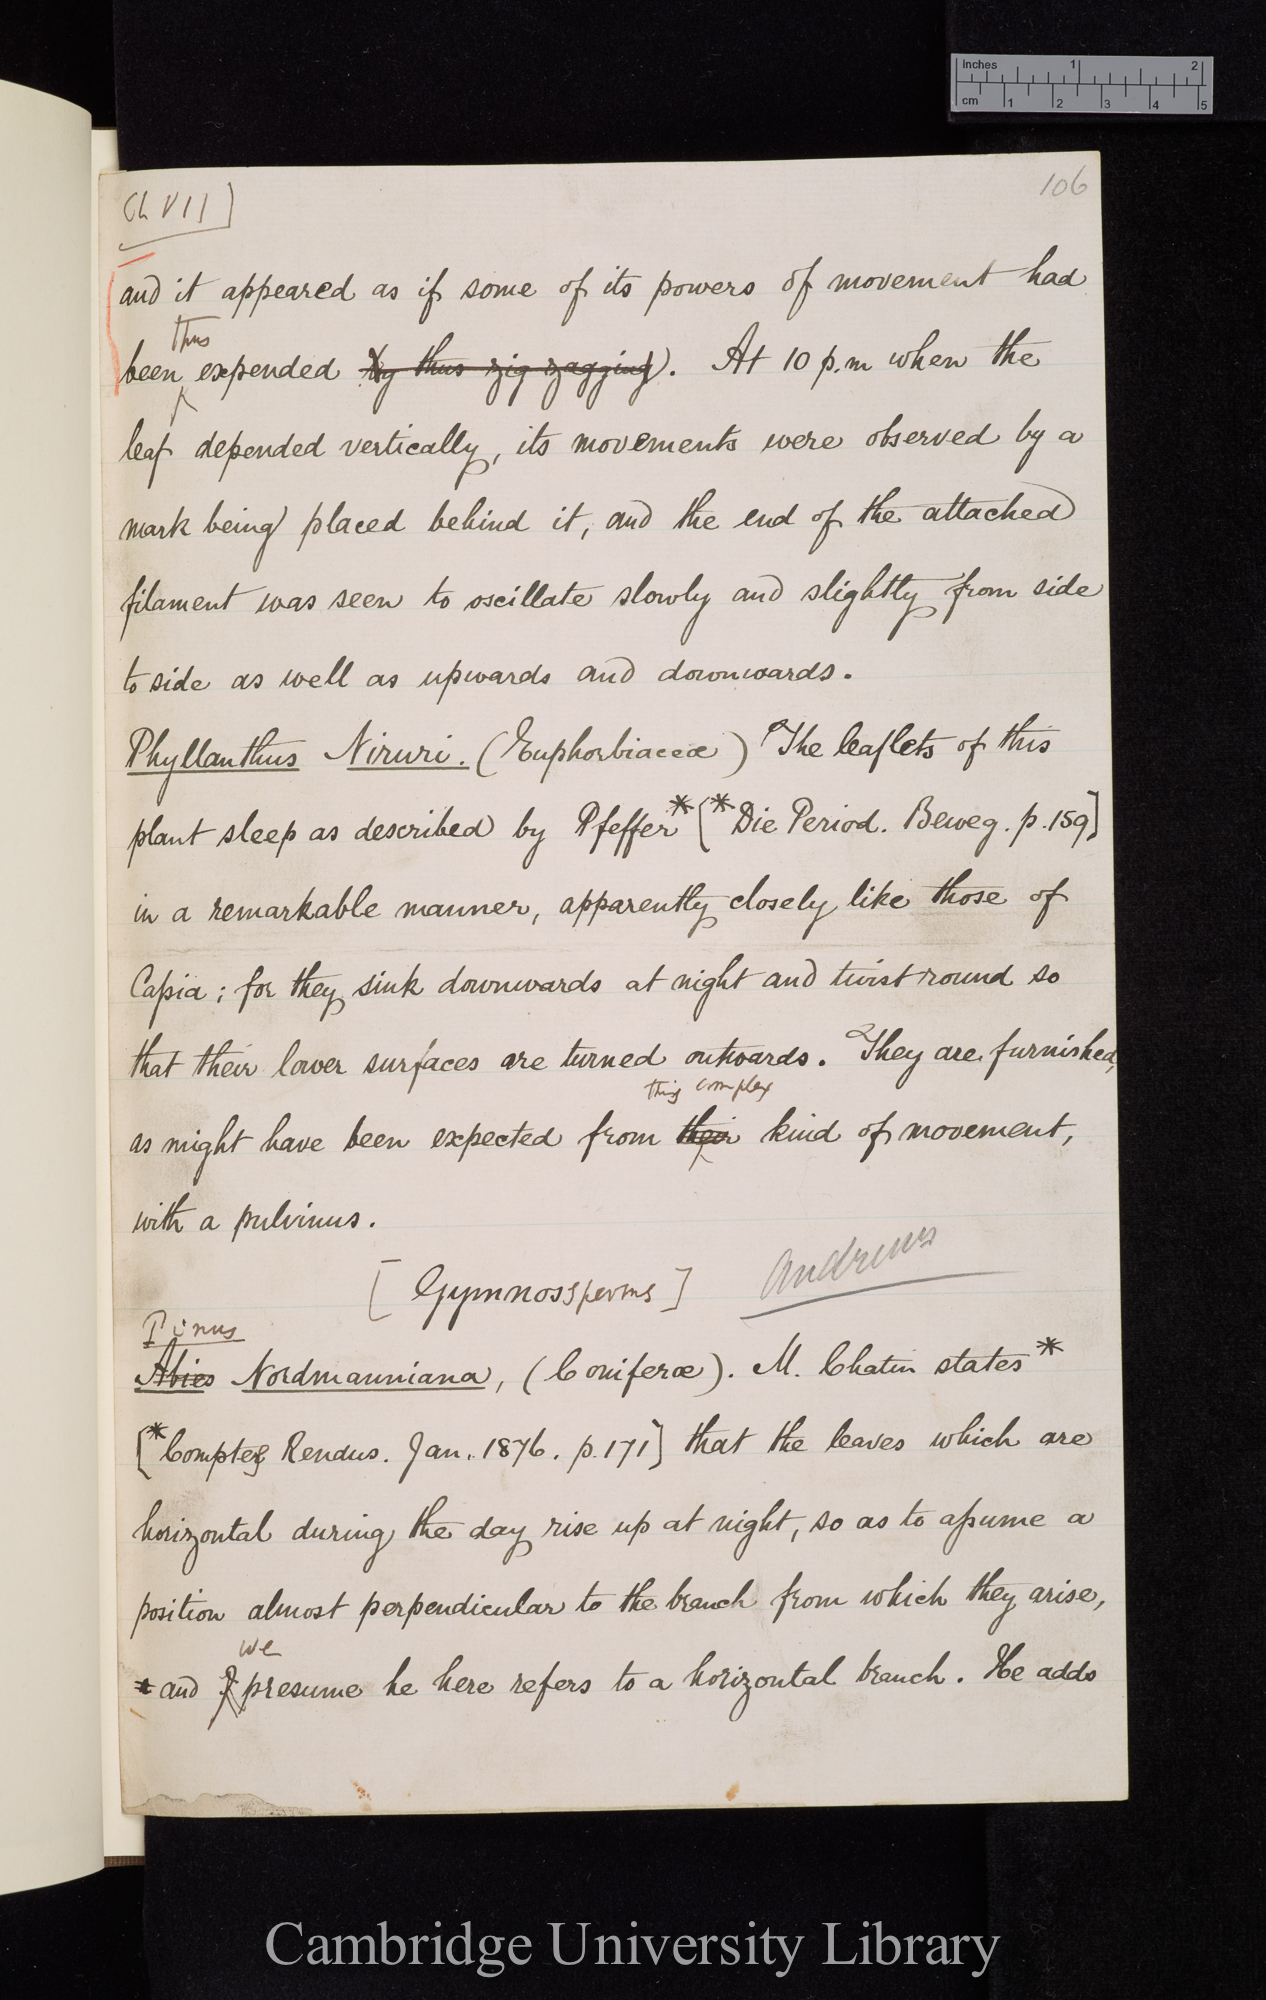 Ch VII]
106
and it appeared as if some of its powers of movement had
thus
been expended by thus zig zagging. At 10 p.m when the
leaf depended vertically, its movements were observed by a
mark being placed behind it, and the end of the attached
filament was seen to oscillate slowly and slightly from side
to side as well as upwards and downwards.
Phyllanthus Niruri. (Euphorbiaceæ) The leaflets of this
plant sleep as described by Pfeffer* [*Die Period. Beweg. p. 159]
in a remarkable manner, apparently closely like those of
Cassia; for they sink downwards at night and twist round so
that their lower surfaces are turned outwards. They are furnished,
this complex
as might have been expected from their kind of movement,
with a pulvinus.
[Gymnossperms] Andrews
Pinus
Abies Nordmanniana, (Coniferæ). M. Chatin states*
[*Comptes Rendus. Jan. 1876. p. 171] that the leaves which are
horizontal during the day rise up at night, so as to assume a
position almost perpendicular to the branch from which they arise,
we
and I presume he here refers to a horizontal branch. He adds
Inches 1 2
cm 1 2 3 4 5
Cambridge University Library